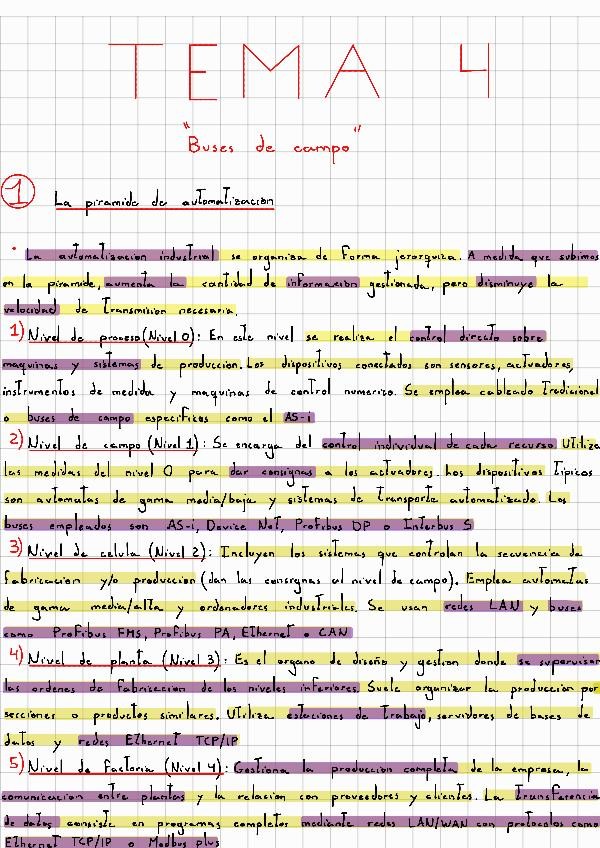 TEMA 4
"Buses de campo"
1 La piramide de automatizacion
· La automatizacion industrial se organiza de forma jerarquiza. A medida que subimos
en la piramide, aumenta la cantidad de informacion gestionada, pero disminuye la
velocidad de transmision necesaria.
1) Nivel de proceso (Nivel 0): En este nivel se realiza el control directo sobre
maquinas y sistemas de produccion. Los dispositivos conectados son sensores, actuadores,
instrumentos de medida y maquinas de control numerico. Se emplea cableado tradicional
o buses de campo especificos como el AS-i
2) Nivel de campo (Nivel 1): Se encarga del control individual de cada recurso Utiliza
las medidas del nivel 0 para dar consignas a los actuadores. Los dispositivos tipicos
son automatas de gama media/baja y sistemas de transporte automatizado. Los
buses empleados son AS-i, Device Net, Profibus DP o Interbus S
3) Nivel de celula (Nivel 2): Incluyen los sistemas que controlan la secuencia de
fabricacion y/o produccion (dan las consignas al nivel de campo). Emplea automatas
de gama media/alta y ordenadores industriales. Se usan redes LAN y buses
como Profibus FMS, Profibus PA, Ethernet o CAN
4) Nivel de planta (Nivel 3): Es el organo de diseño y gestion donde se supervisan
las ordenes de fabricacion de los niveles inferiores. Suele organizar la produccion por
secciones o productos similares. Utiliza estaciones de trabajo, servidores de bases de
datos y redes Ethernet TCP/IP
5) Nivel de factoria (Nivel 4): Gestiona la produccion completa de la empresa, la
comunicacion entre plantas y la relacion con proveedores y clientes. La transferencia
de datos consiste en programas completos mediante redes LAN/WAN con protocolos como
Ethernet TCP/IP o Modbus plus